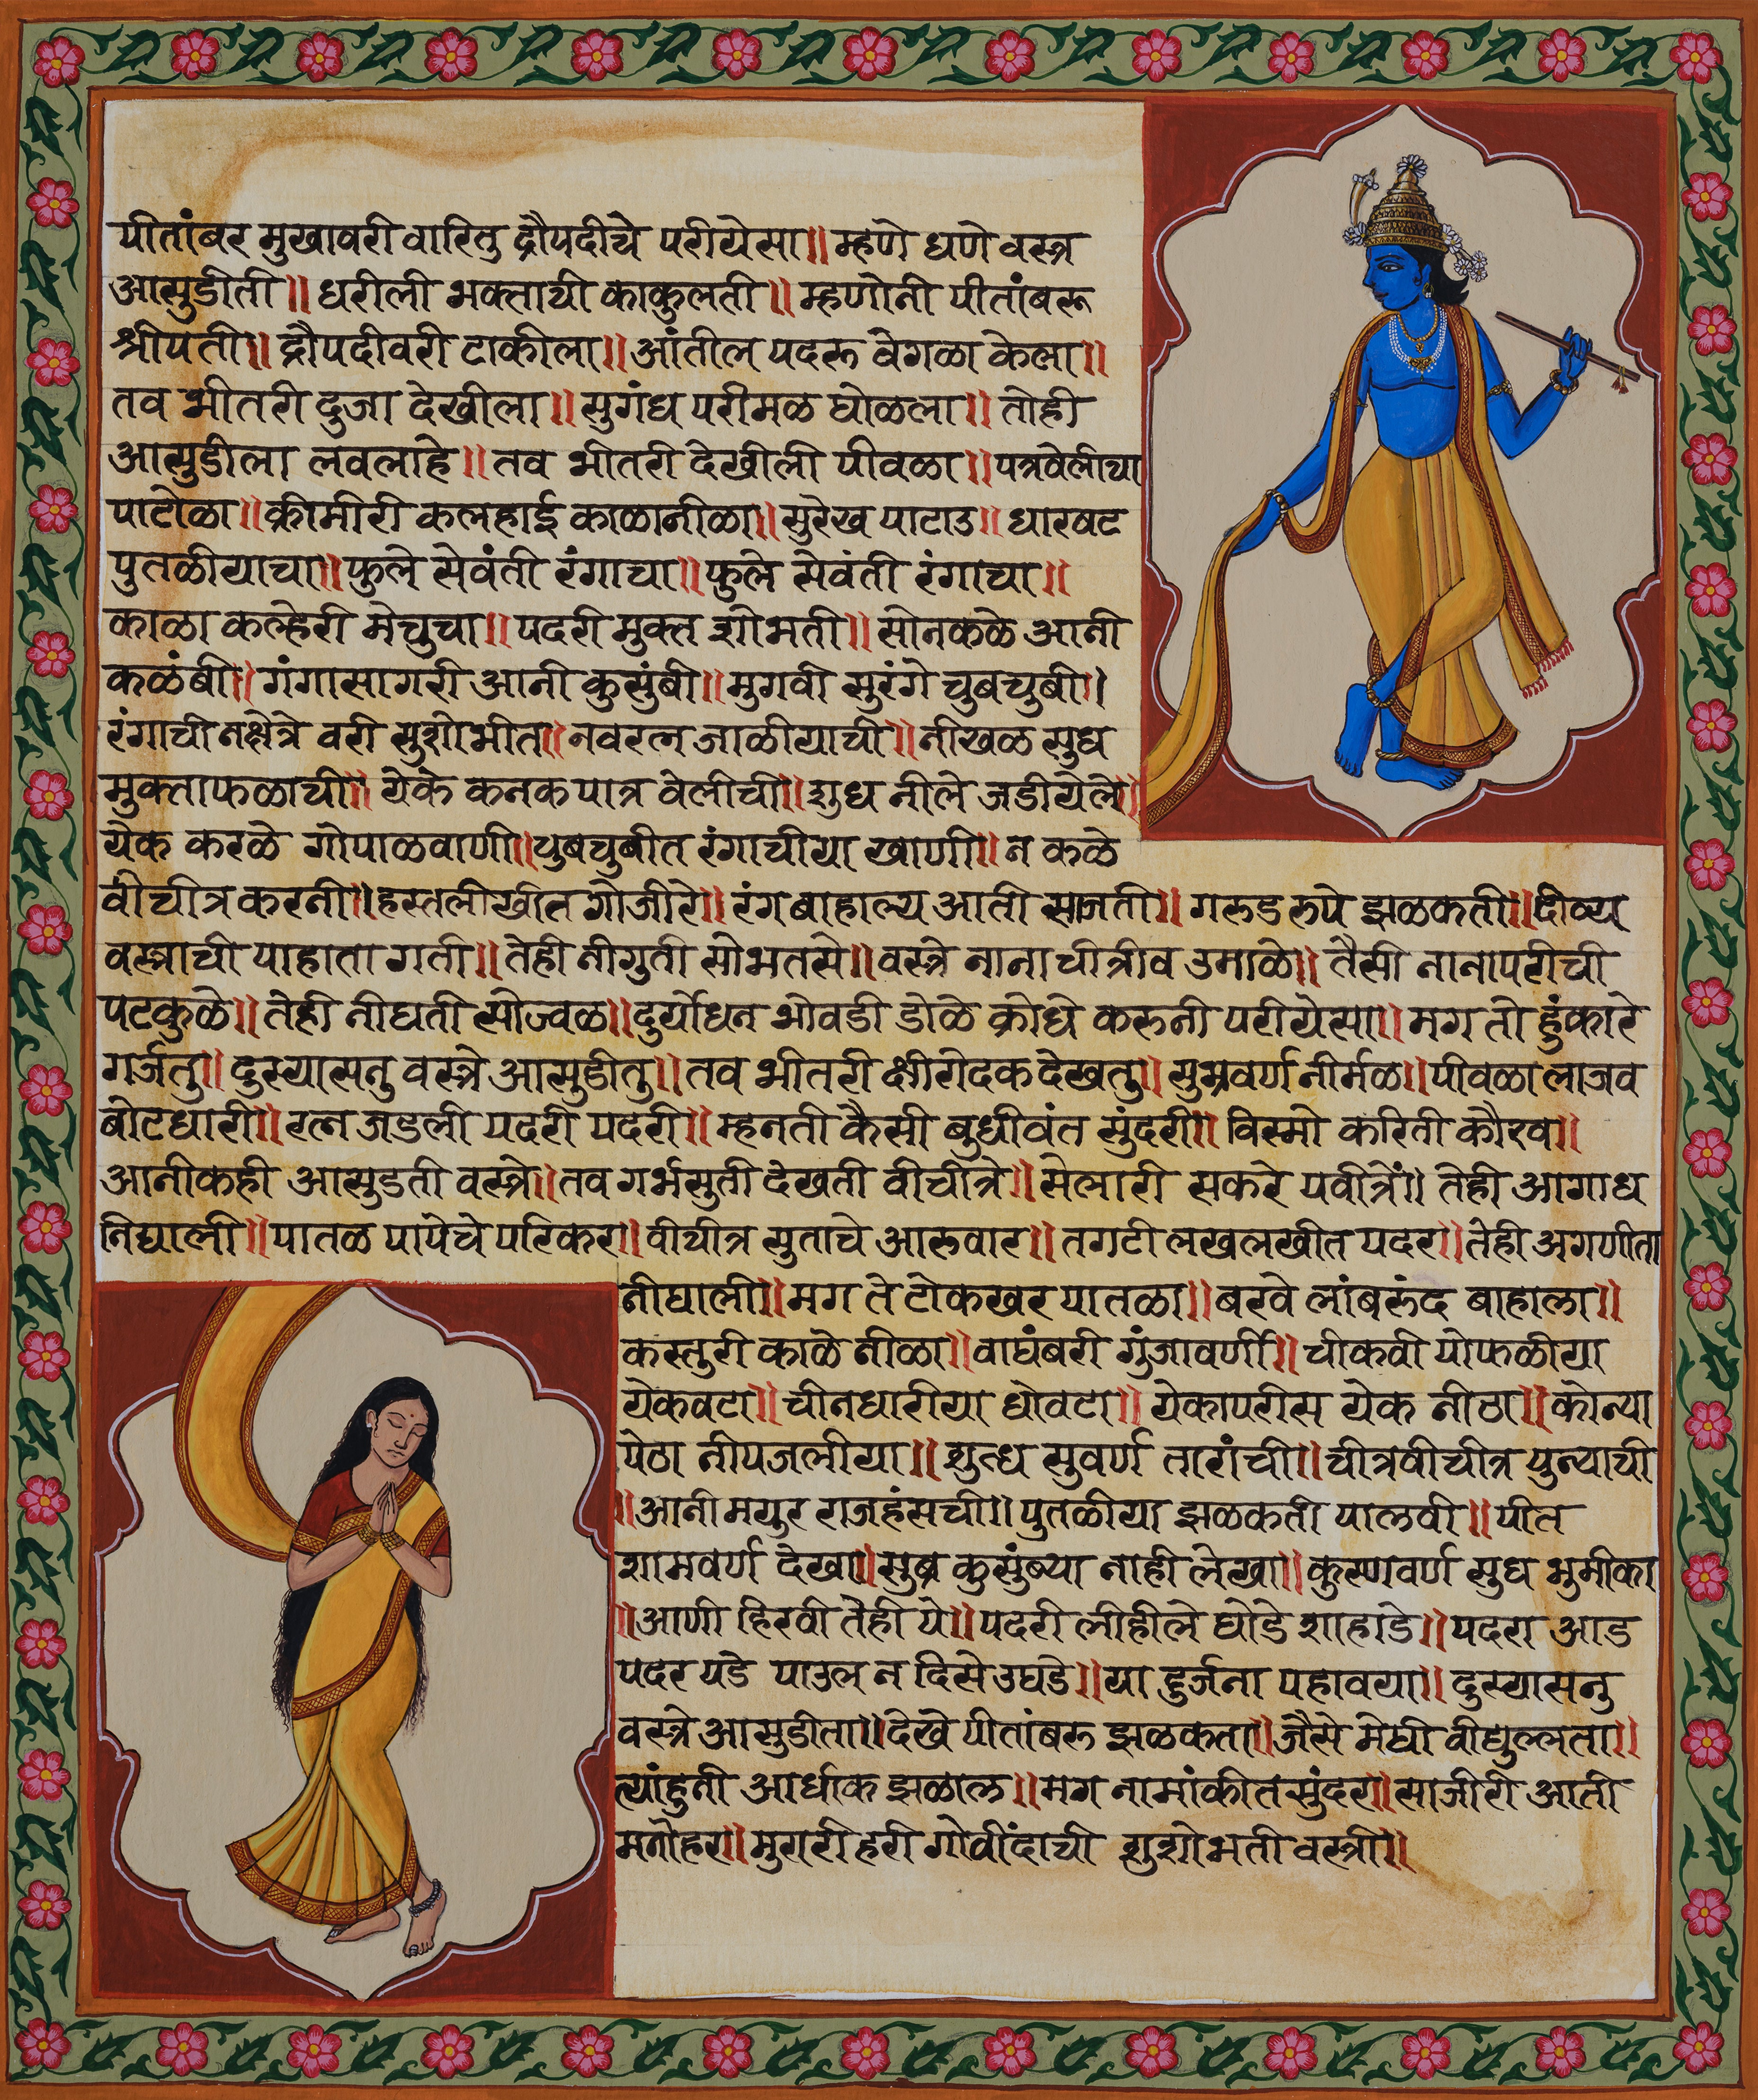 पीतांबर मुखावरी वारितु द्रौपदीचे परीयेसा॥ म्हणे धणे वस्त्र
आसुडीती॥ धरीली भक्ताची काकुलती॥ म्हणोनी पीतांबरू
श्रीपती॥ द्रौपदीवरी टाकीला॥ आंतील पदरू वेगळा केला॥
तव भीतरी दुजा देखीला॥ सुगंध परीमळ घोळला॥ तोही
आसुडीला लवलाहे॥ तव भीतरी देखीली पीवळा॥ पत्रवेलीचा
पाटोळा॥ क्रीमीरी कलहाई काळानीळा॥ सुरेख पाटाउ॥ धारबट
पुतळीयाचा॥ फुले सेवंती रंगाचा॥ फुले सेवंती रंगाचा॥
काळा कल्हेरी मेचुचा॥ पदरी मुक्त शोभती॥ सोनकळे आनी
कळंबी॥ गंगासागरी आनी कुसुंबी॥ मुगवी सुरंगे चुबचुबी॥
रंगाची नक्षेत्रे वरी सुशोभीत॥ नवरत्न जाळीयाची॥ नीखळ सुध
मुक्ताफळाची॥ येके कनकपात्र वेलीची॥ शुध नीले जडीयेले॥
येक करळे गोपाळवाणी॥ चुबचुबीत रंगाचीया खाणी॥ न कळे
वीचीत्र करनी॥ हस्तलीखीत गोजीरे॥ रंग बाहाल्य आती साजती॥ गरुड रुपे झळकती॥ दीव्य
वस्त्राची पाहाता गती॥ तेही नीगुती सोभतसे॥ वस्त्रे नाना चीत्रीव उमाळे॥ तैसी नानापरीची
पटकुळे॥ तेही नीघती सोज्वळ॥ दुर्योधन भोवडी डोळे क्रोधे करुनी परीयेसा॥ मग तो हुंकारे
गर्जतु॥ दुस्यासनु वस्त्रे आसुडीतु॥ तव भीतरी क्षीरोदक देखतु॥ सुभ्रवर्ण नीर्मळ॥ पीवळा लाजव
बोटधारी॥ रत्न जडली पदरी पदरी॥ म्हनती कैसी बुधीवंत सुंदरी॥ विस्मो करिती कौरव॥
आनीकही आसुडती वस्त्रे॥ तव गर्भसुती देखती वीचीत्रे॥ सेलारी सकरे पवीत्रें॥ तेही आगाध
निघाली॥ पातळ पापेचे परिकर॥ वीचीत्र सुताचे आरुवार॥ तगटी लखलखीत पदर॥ तेही अगणीता
नीघाली॥ मग ते टोकखर पातळा॥ बरवे लांबरुंद बाहाला॥
कस्तुरी काळे नीळा॥ वाघंबरी गुंजावर्णी॥ चीकवी पोफळीया
येकवटा॥ चीनधारीया धोवटा॥ येकापरीस येक नीठा॥ कोन्या
पेठा नीपजलीया॥ शुत्ध सुवर्ण तारांची॥ चीत्रवीचीत्र पुन्याची
॥आनी मयुर राजहंसची॥ पुतळीया झळकती पालवी॥ पीत
शामवर्ण देखा॥ सुभ्र कुसुंब्या नाही लेखा॥ कुस्णवर्ण सुध भुमीका
॥आणी हिरवी तेही ये॥ पदरी लीहीले घोडे शाहाडे॥ पदरा आड
पदर पडे पाउल न दिसे उघडे॥ या दुर्जना पहावया॥ दुस्यासनु
वस्त्रे आसुडीता॥ देखे पीतांबरू झळकता॥ जैसे मेघी वीद्युल्लता॥
त्यांहुती आर्धाक झळाल॥ मग नामांकीत सुंदरा॥ साजीरी आती
मनोहरा॥ मुरारी हरी गोवींदाची शुशोभती वस्त्री॥